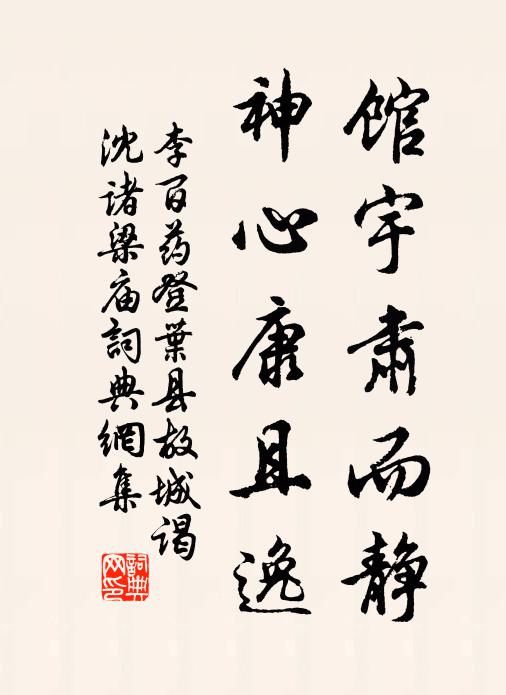 馆宇肃而静
神心康且逸
李百药登葉县故城谒
沈诸梁庙詞典網集
詞典
网印